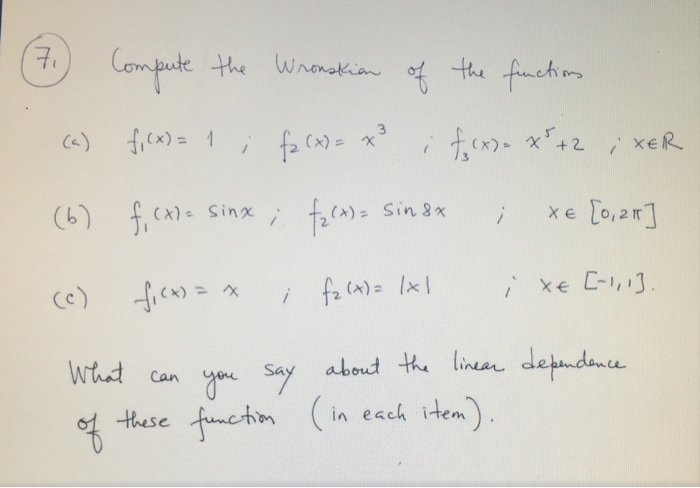 7. Compute the Wronskian of the functions
(a) f₁(x) = 1 ; f₂(x) = x³ ; f₃(x) = x⁵+2 ; x∈R
(b) f₁(x) = sinx ; f₂(x) = sin8x ; x∈ [0,2π]
(c) f₁(x) = x ; f₂(x) = |x| ; x∈ [-1,1].
What can you say about the linear dependence
of these function (in each item).